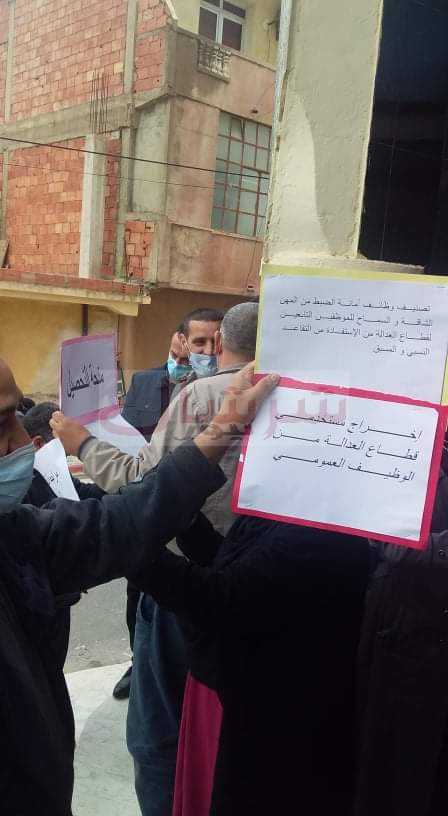 تصنيف وظائف أمانة الضبط من المهن
الشاقة و السماح للموظفين التابعين
لقطاع العدالة من الإستفادة من التقاعد
النسبي و المسبق
إخراج مستخدمي
قطاع العدالة من
الوظيف العمومي
منحة التحصيل